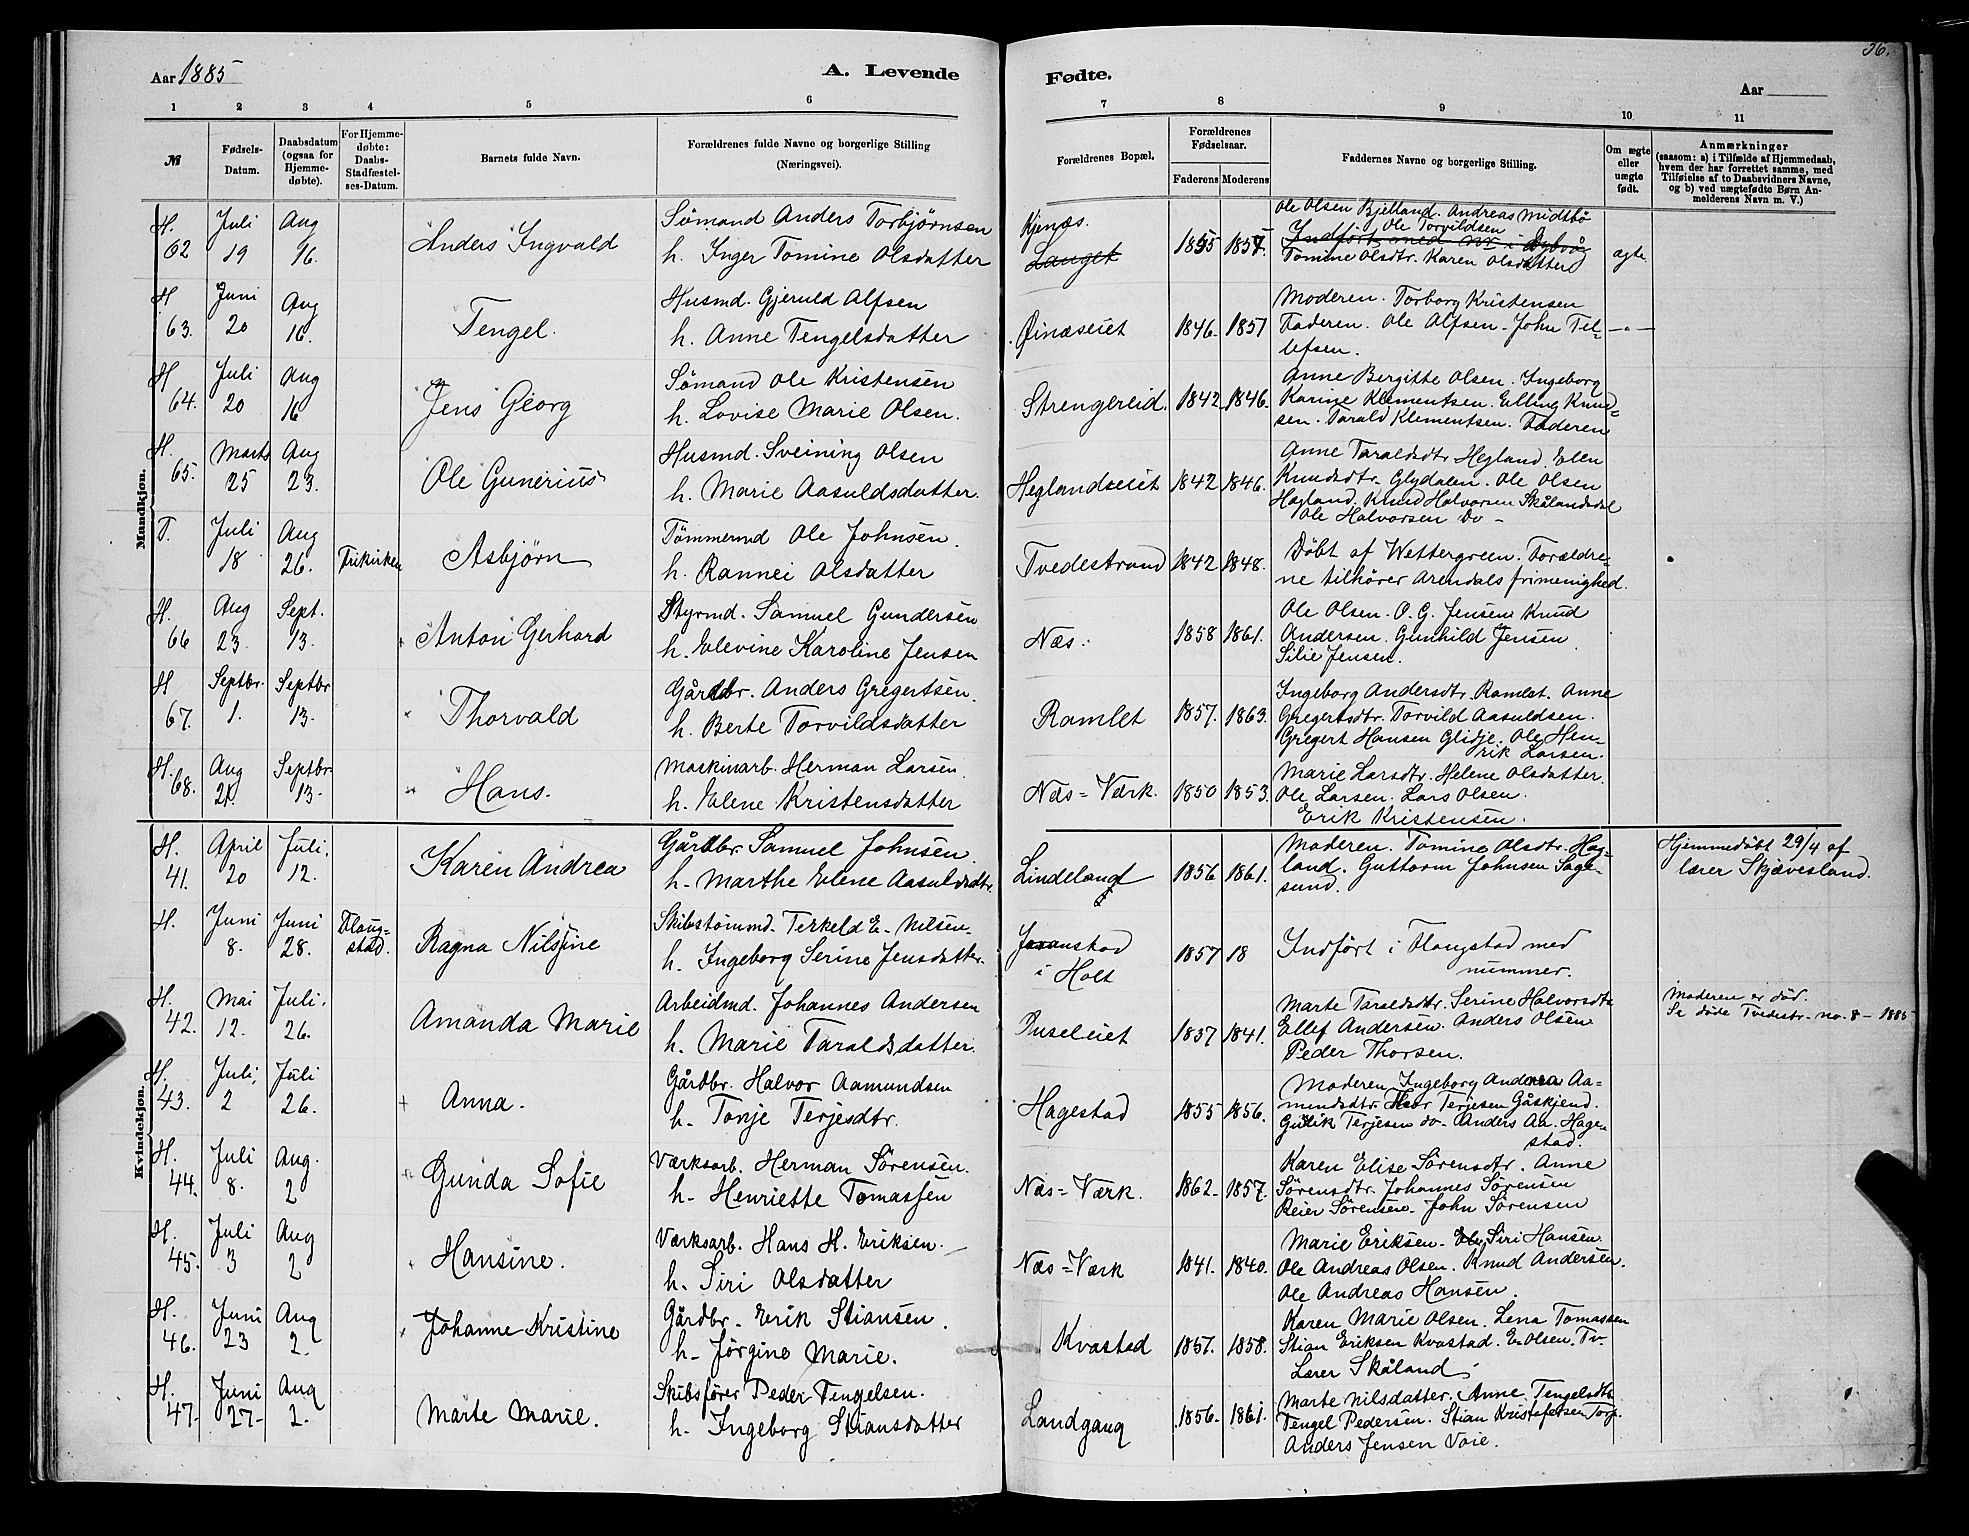 36.
Aar 1885
A. Levende
Fødte.
Aar
1 2 3 4 5 6 7 8 9 10 11
№
Fødsels-
Datum.
Daabsdatum
(ogsaa for
Hjemme-
døbte).
For Hjemme-
døbte:
Daabs-
Stadfæstel-
ses-Datum.
Barnets fulde Navn.
Forældrenes fulde Navne og borgerlige Stilling
(Næringsvei).
Forældrenes Bopæl.
Forældrenes
Fødselsaar.
Faderens Moderens
Faddernes Navne og borgerlige Stilling.
Om ægte
eller
uægte
født.
Anmærkninger
(saasom: a) i Tilfælde af Hjemmedaab,
hvem der har forrettet samme, med
Tilføielse af to Daabsvidners Navne,
og b) ved uægtefødte Børn An-
melderens Navn m. V.)
Mandkjøn.
H. 62 Juli 19 Aug 16. Anders Ingvald
Sömand Anders Torbjørnsen
h. Inger Tomine Olsdatter
Kjenæs. Langet 1855 1857.
Ole Olsen Bjelland. Andreas Midtbö
Ole Torvildsen
Indført med nr i Dybvåg
Tomine Olsdtr. Karen Olsdatter
ægte
H 63. Juni 20 Aug 16. Tengel.
Husmd. Gjeruld Alfsen
h. Anne Tengelsdatter
Øinæseiet 1846. 1857
Moderen. Torborg Kristensen
Faderen. Ole Alfsen. John Tel-
lefsen.
—"—
H 64. Juli 20 Aug 16 Jens Georg
Sömand Ole Kristensen
h. Lovise Marie Olsen.
Strengereid. 1842 1846.
Anne Bergitte Olsen. Ingeborg
Karine Klementsen. Elling Knud-
sen. Tarald Klementsen. Faderen
H. 65. Marts 25 Aug 23. Ole Gunerius
Husmd. Sveining Olsen
h. Marie Aasuldsdatter.
Heglandseiet 1842 1846.
Anne Taraldsdtr Hegland. Elen
Knudsdtr. Glydalen. Ole Olsen
Hagland. Knud Halvorsen Skålandsdal
Ole Halvorsen Do -
T. Juli 18 Aug 26. Frikirken Asbjørn
Tömmermd Ole Johnsen.
h. Rannei Olsdatter
Tvedestrand 1842 1848.
Döbt af Wettergreen. Forældre-
ne tilhører Arendals frimenighed.
H. 66 Aug 23. Sept. 13. Anton Gerhard
Styrmd. Samuel Gundersen
h. Elevine Karoline Jensen
Næs. 1858 1861.
Ole Olsen. O. G. Jensen Knud
Andersen. Gunhild Jensen
Silie Jensen.
H 67. Septbr. 1. Septbr 13. Thorvald
Gårdbr. Anders Gregertsen.
h. Berte Torvildsdatter
Ramlet 1857. 1863.
Ingeborg Andersdtr. Ramlet. Anne
Gregertsdtr. Torvild Aasuldsen.
Gregert Hansen Glidje. Ole Hen-
rik Larsen.
H. 68. Aug 21. Septbr. 13. Hans.
Maskinarb. Herman Larsen.
h. Elene Kristensdatter
Næs=Værk. 1850 1853.
Marie Larsdtr. Helene Olsdatter.
Ole Larsen. Lars Olsen.
Erik Kristensen.
Kvindekjøn.
H. 41. April 20 Juli. 12. Karen Andrea
Gårdbr. Samuel Johnsen.
h. Marthe Elene Aasuldsdtr.
Lindeland 1856 1861.
Moderen. Tomine Olsdtr. Hag-
land. Guttorm Johnsen Sage-
sund.
Hjemmedøbt 29/4 af
lærer Skjævesland.
H. Juni 8. Juni 28. Flang-
stad. Ragna Nilsine
Skibstömmd. Terkeld E. Nilsen.
h. Ingeborg Serine Jensdatter.
i Holt 1857 18
Indført i Flangstad med
nummer.
H. 42. Mai 12. Juli. 26. Amanda Marie
Arbeidmd. Johannes Andersen
h. Marie Taraldsdatter.
Puseleiet 1837 1841.
Marte Taraldsdtr. Serine Halvorsdtr
Ellef Andersen. Anders Olsen
Peder Thorsen.
Moderen er død.
Se døde Tvedestr. no. 8 - 1885
H. 43. Juli. 2 Juli 26. Anna.
Gårdbr. Halvor Aamundsen
h. Tonje Terjesdtr.
Hagestad 1855 1856.
Moderen Ingeborg Andrea Aa-
mundsdtr. Terjesen Gåskjend.
Gulik Terjesen do. Anders Aa. Hage-
stad.
H. 44. Juli 8. Aug. 2 Gunda Sofie
Værksarb. Herman Sörensen.
h. Henriette Tomassen
Næs=Værk. 1862. 1857.
Karen Elise Sörensdtr. Anne
Sörensdtr. Johannes Sörensen
Reier Sörensen. John Sörensen
H. 45. Juli 3 Aug 2 Hansine.
Værksarb. Hans H. Eriksen.
h. Siri Olsdatter
Næs=Værk 1841. 1840.
Marie Eriksen. Siri Hansen
Ole Andreas Olsen. Knud Andersen.
Ole Andreas Hansen.
H. 46. Juni 23 Aug 2. Johanne Kristine
Gårdbr. Erik Stiansen.
h. Jörgine Marie.
Kvastad 1857. 1858.
Karen Marie Olsen. Lena Tomassen
Stian Eriksen Kvastad. E. Olsen. Tv.
Lærer Skåland
H. 47. Juni 27. Aug 2. Marte Marie.
Skibsfører Peder Tengelsen.
h. Ingeborg Stiansdatter
Landgang 1856. 1861.
Marte Nilsdatter. Anne Tengelsdtr
Tengel Pedersen. Stian Kristofersen Torp.
Anders Jensen Voie.